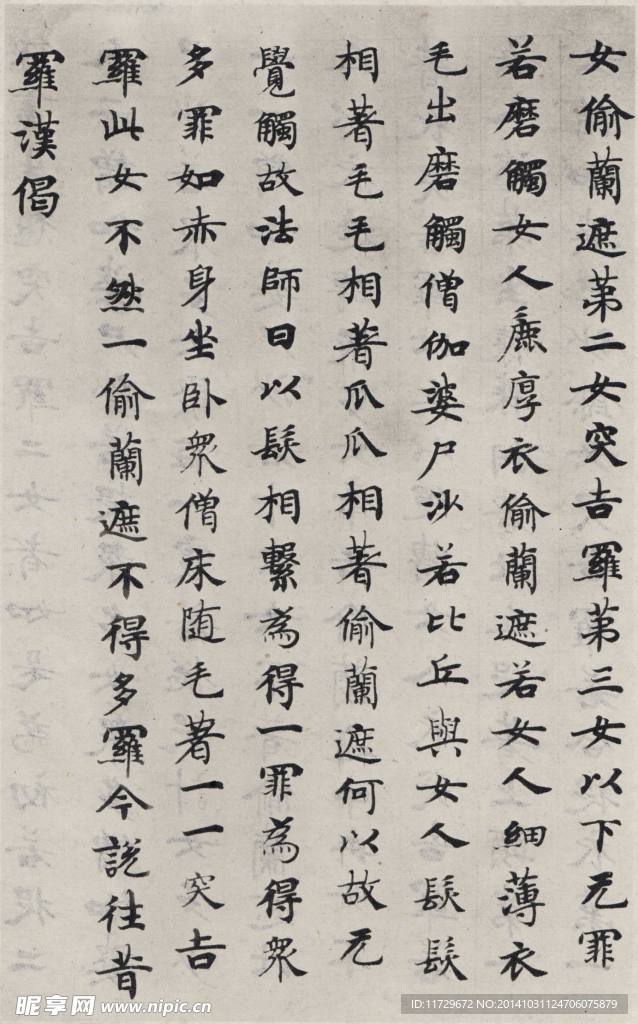 女偷蘭遮第二女突吉羅第三女以下无罪
若磨觸女人麁厚衣偷蘭遮若女人細薄衣
毛出磨觸僧伽婆尸沙若比丘與女人髮髮
相著毛毛相著爪爪相著偷蘭遮何以故无
覺觸故法師曰以髮相繫為得一罪為得衆
多罪如赤身坐卧衆僧床随毛著一一突吉
羅此女不然一偷蘭遮不得多羅今說往昔
羅漢偈
昵享网 www.nipic.cn
ID:11729672 NO:20141031124706075879